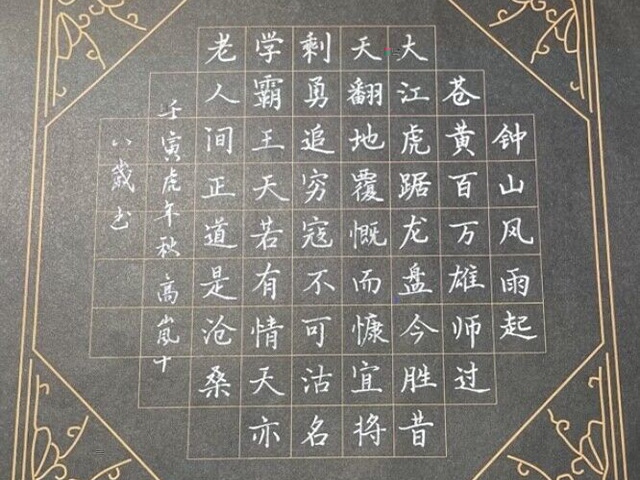 钟山风雨起
苍黄百万雄师过
大江虎踞龙盘今胜昔
天翻地覆慨而慷宜将
剩勇追穷寇不可沽名
学霸王天若有情天亦
老人间正道是沧桑
壬寅虎年秋高嵐十
八歲书